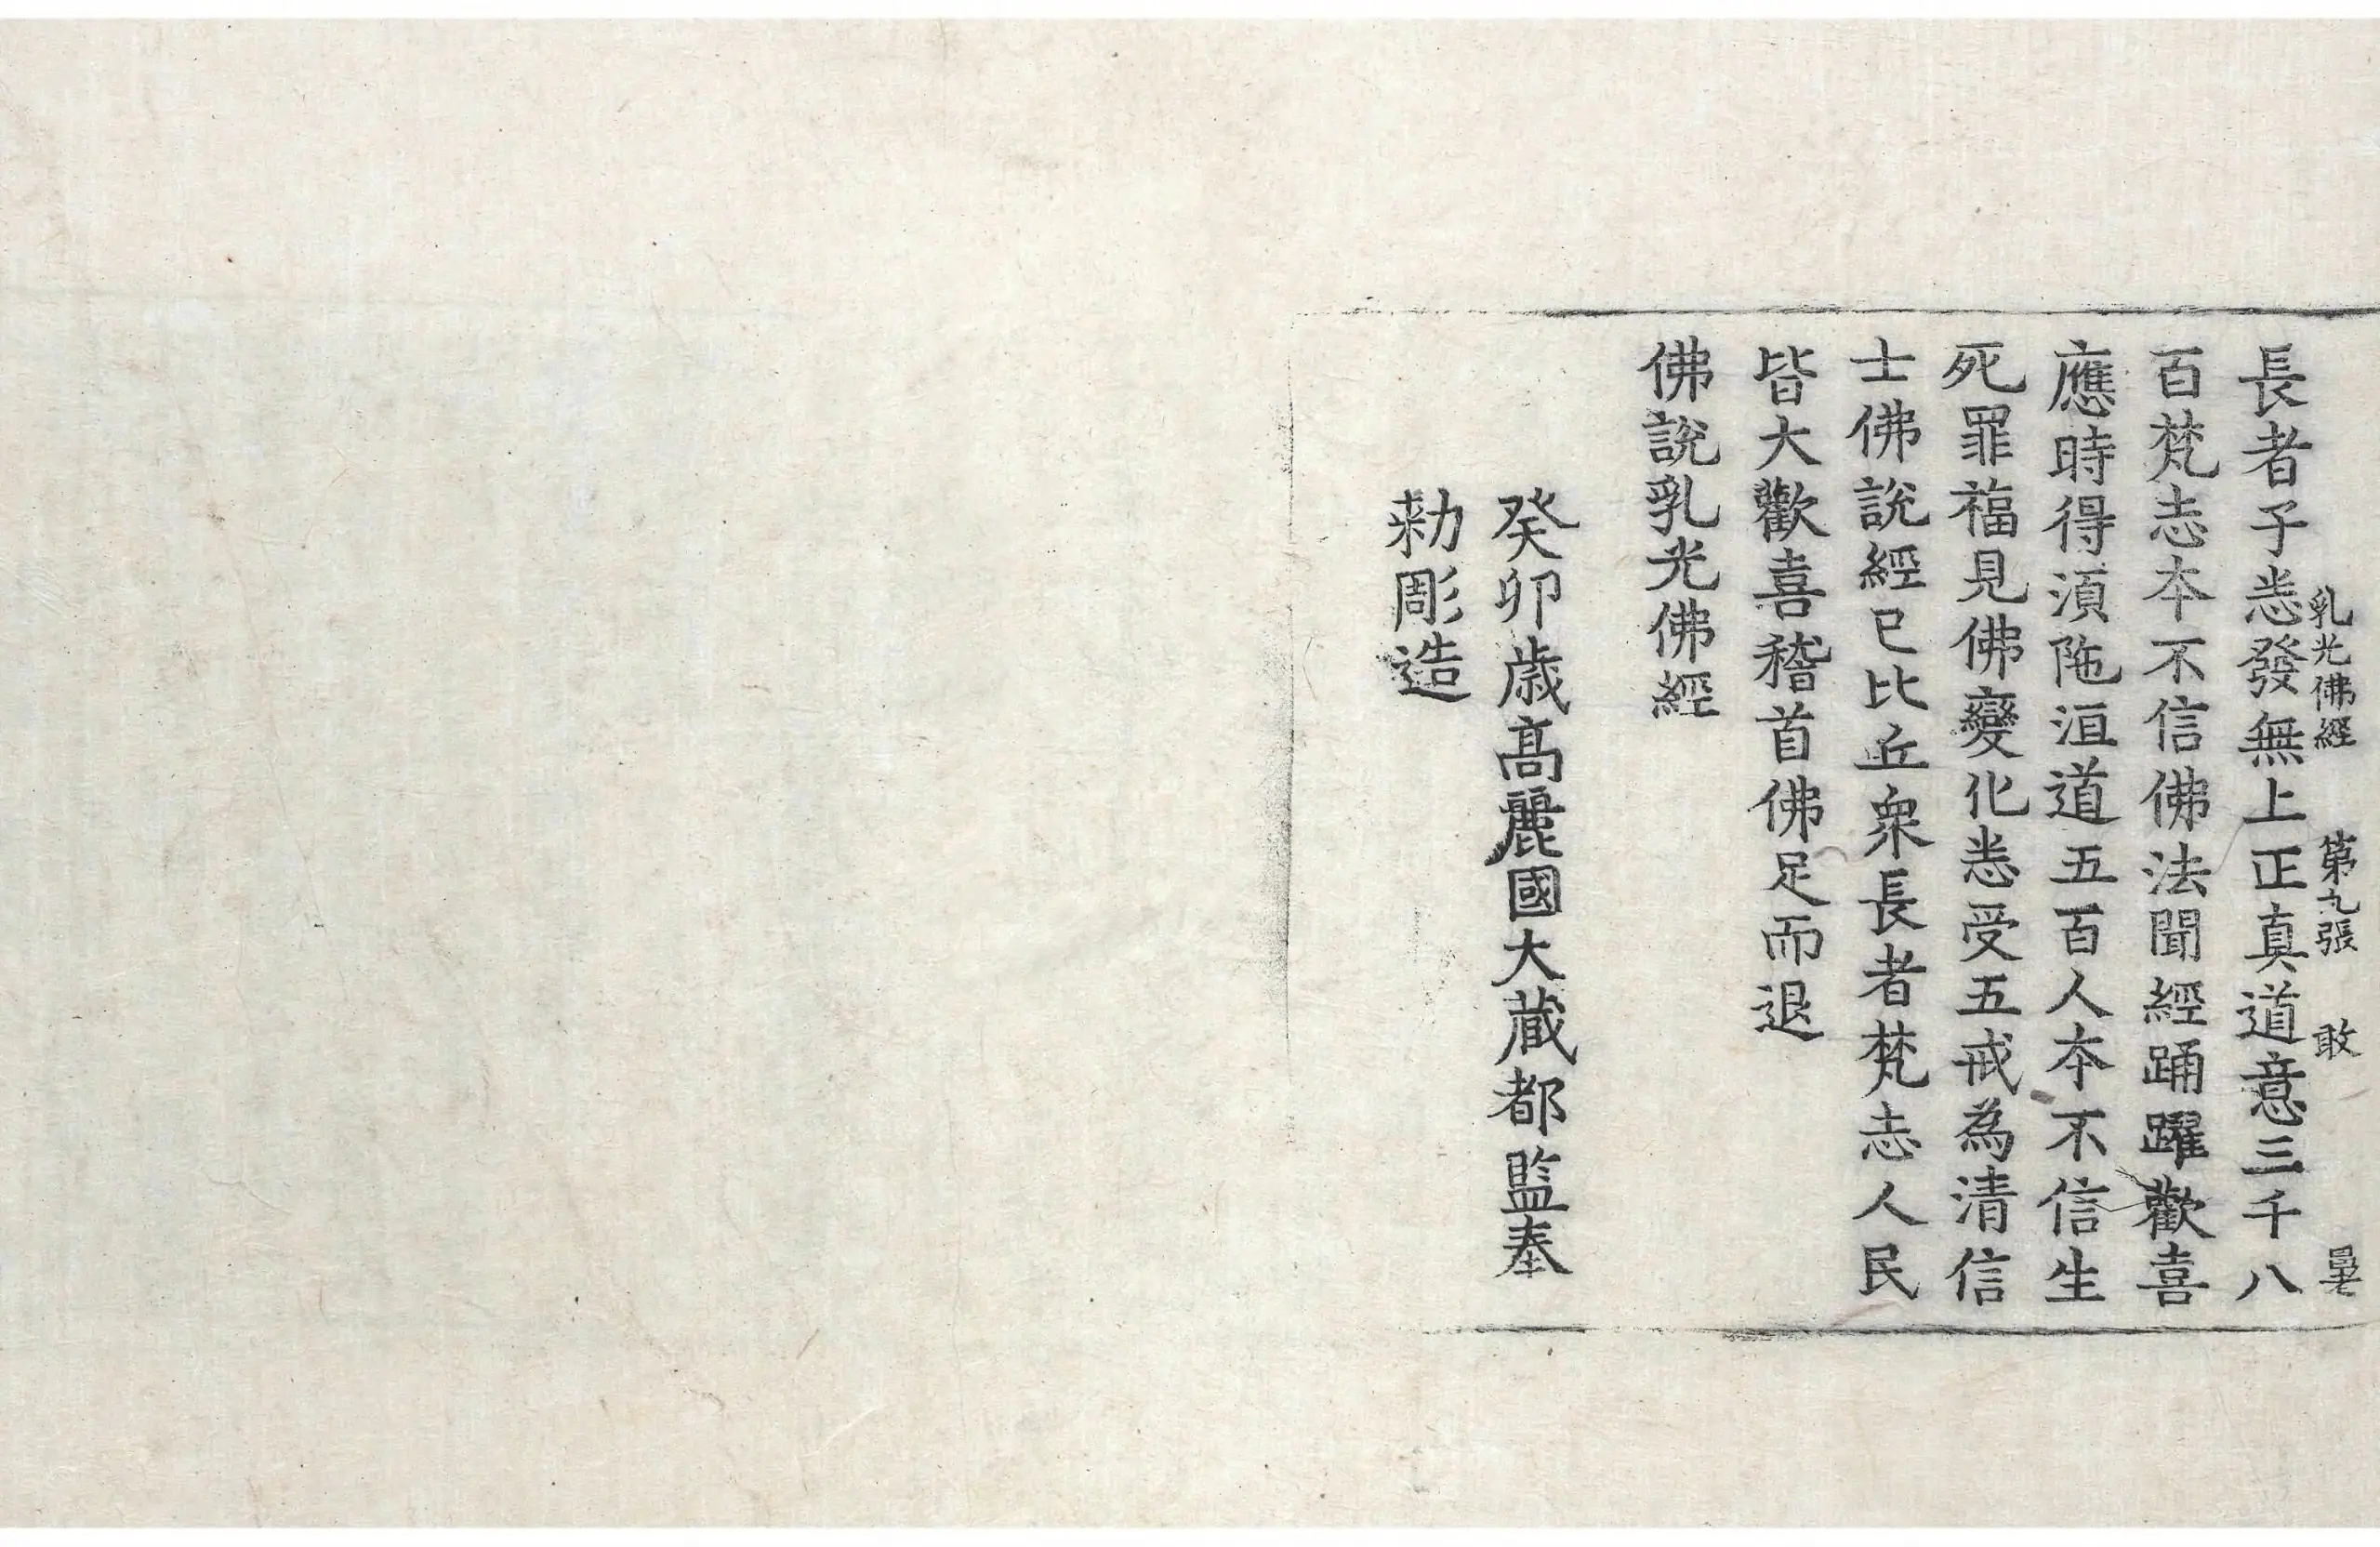 乳光佛經 第九張 敢
長者子悉發無上正真道意三千八
百梵志本不信佛法聞經踊躍歡喜
應時得湏陁洹道五百人本不信生
死罪福見佛變化悉受五戒為清信
士佛說經已比丘衆長者梵志人民
皆大歡喜稽首佛足而退
佛說乳光佛經
癸卯歳髙麗國大藏都監奉
勑彫造